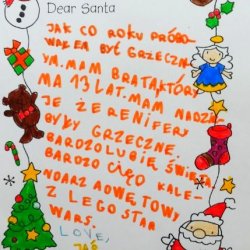 Dear Santa
JAK CO ROKU PRÓBO-
WAŁEM BYĆ GRZECZN
YM. MAM BRATA, KTÓRY
MA 13 LAT. MAM NADZIE
JE ŻE RENIFERY
BYŁY GRZECZNE.
BARDZO LUBIĘ ŚWIĘTA
BARDZO CIĘ O KALE-
NDARZ ADWĘTOWY
Z LEGO STAR
WARS.
LOVE,
JAŚ